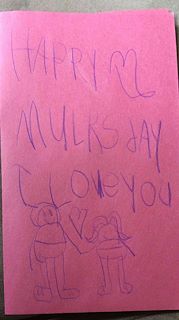 HAPPY M
MULKS dAY
I LoveyoU